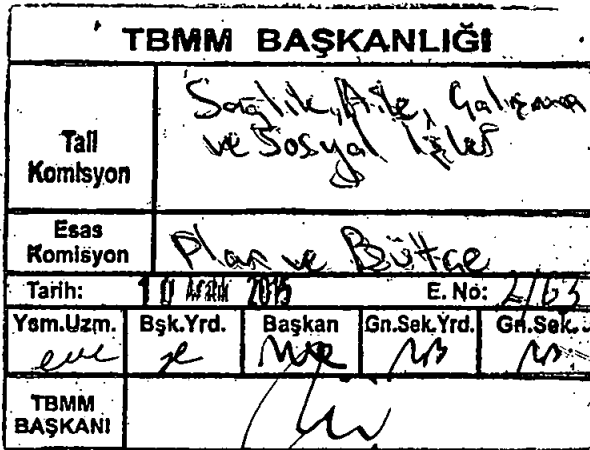 TBMM BAŞKANLIĞI
Tali Komisyon
Sağlık, Aile, Çalışma
ve Sosyal İşler
Esas Komisyon
Plan ve Bütçe
Tarih: 10 Aralık 2015 E. No: 2/63
Ysm.Uzm. Bşk.Yrd. Başkan Gn.Sek.Yrd. Gn.Sek.
TBMM BAŞKANI